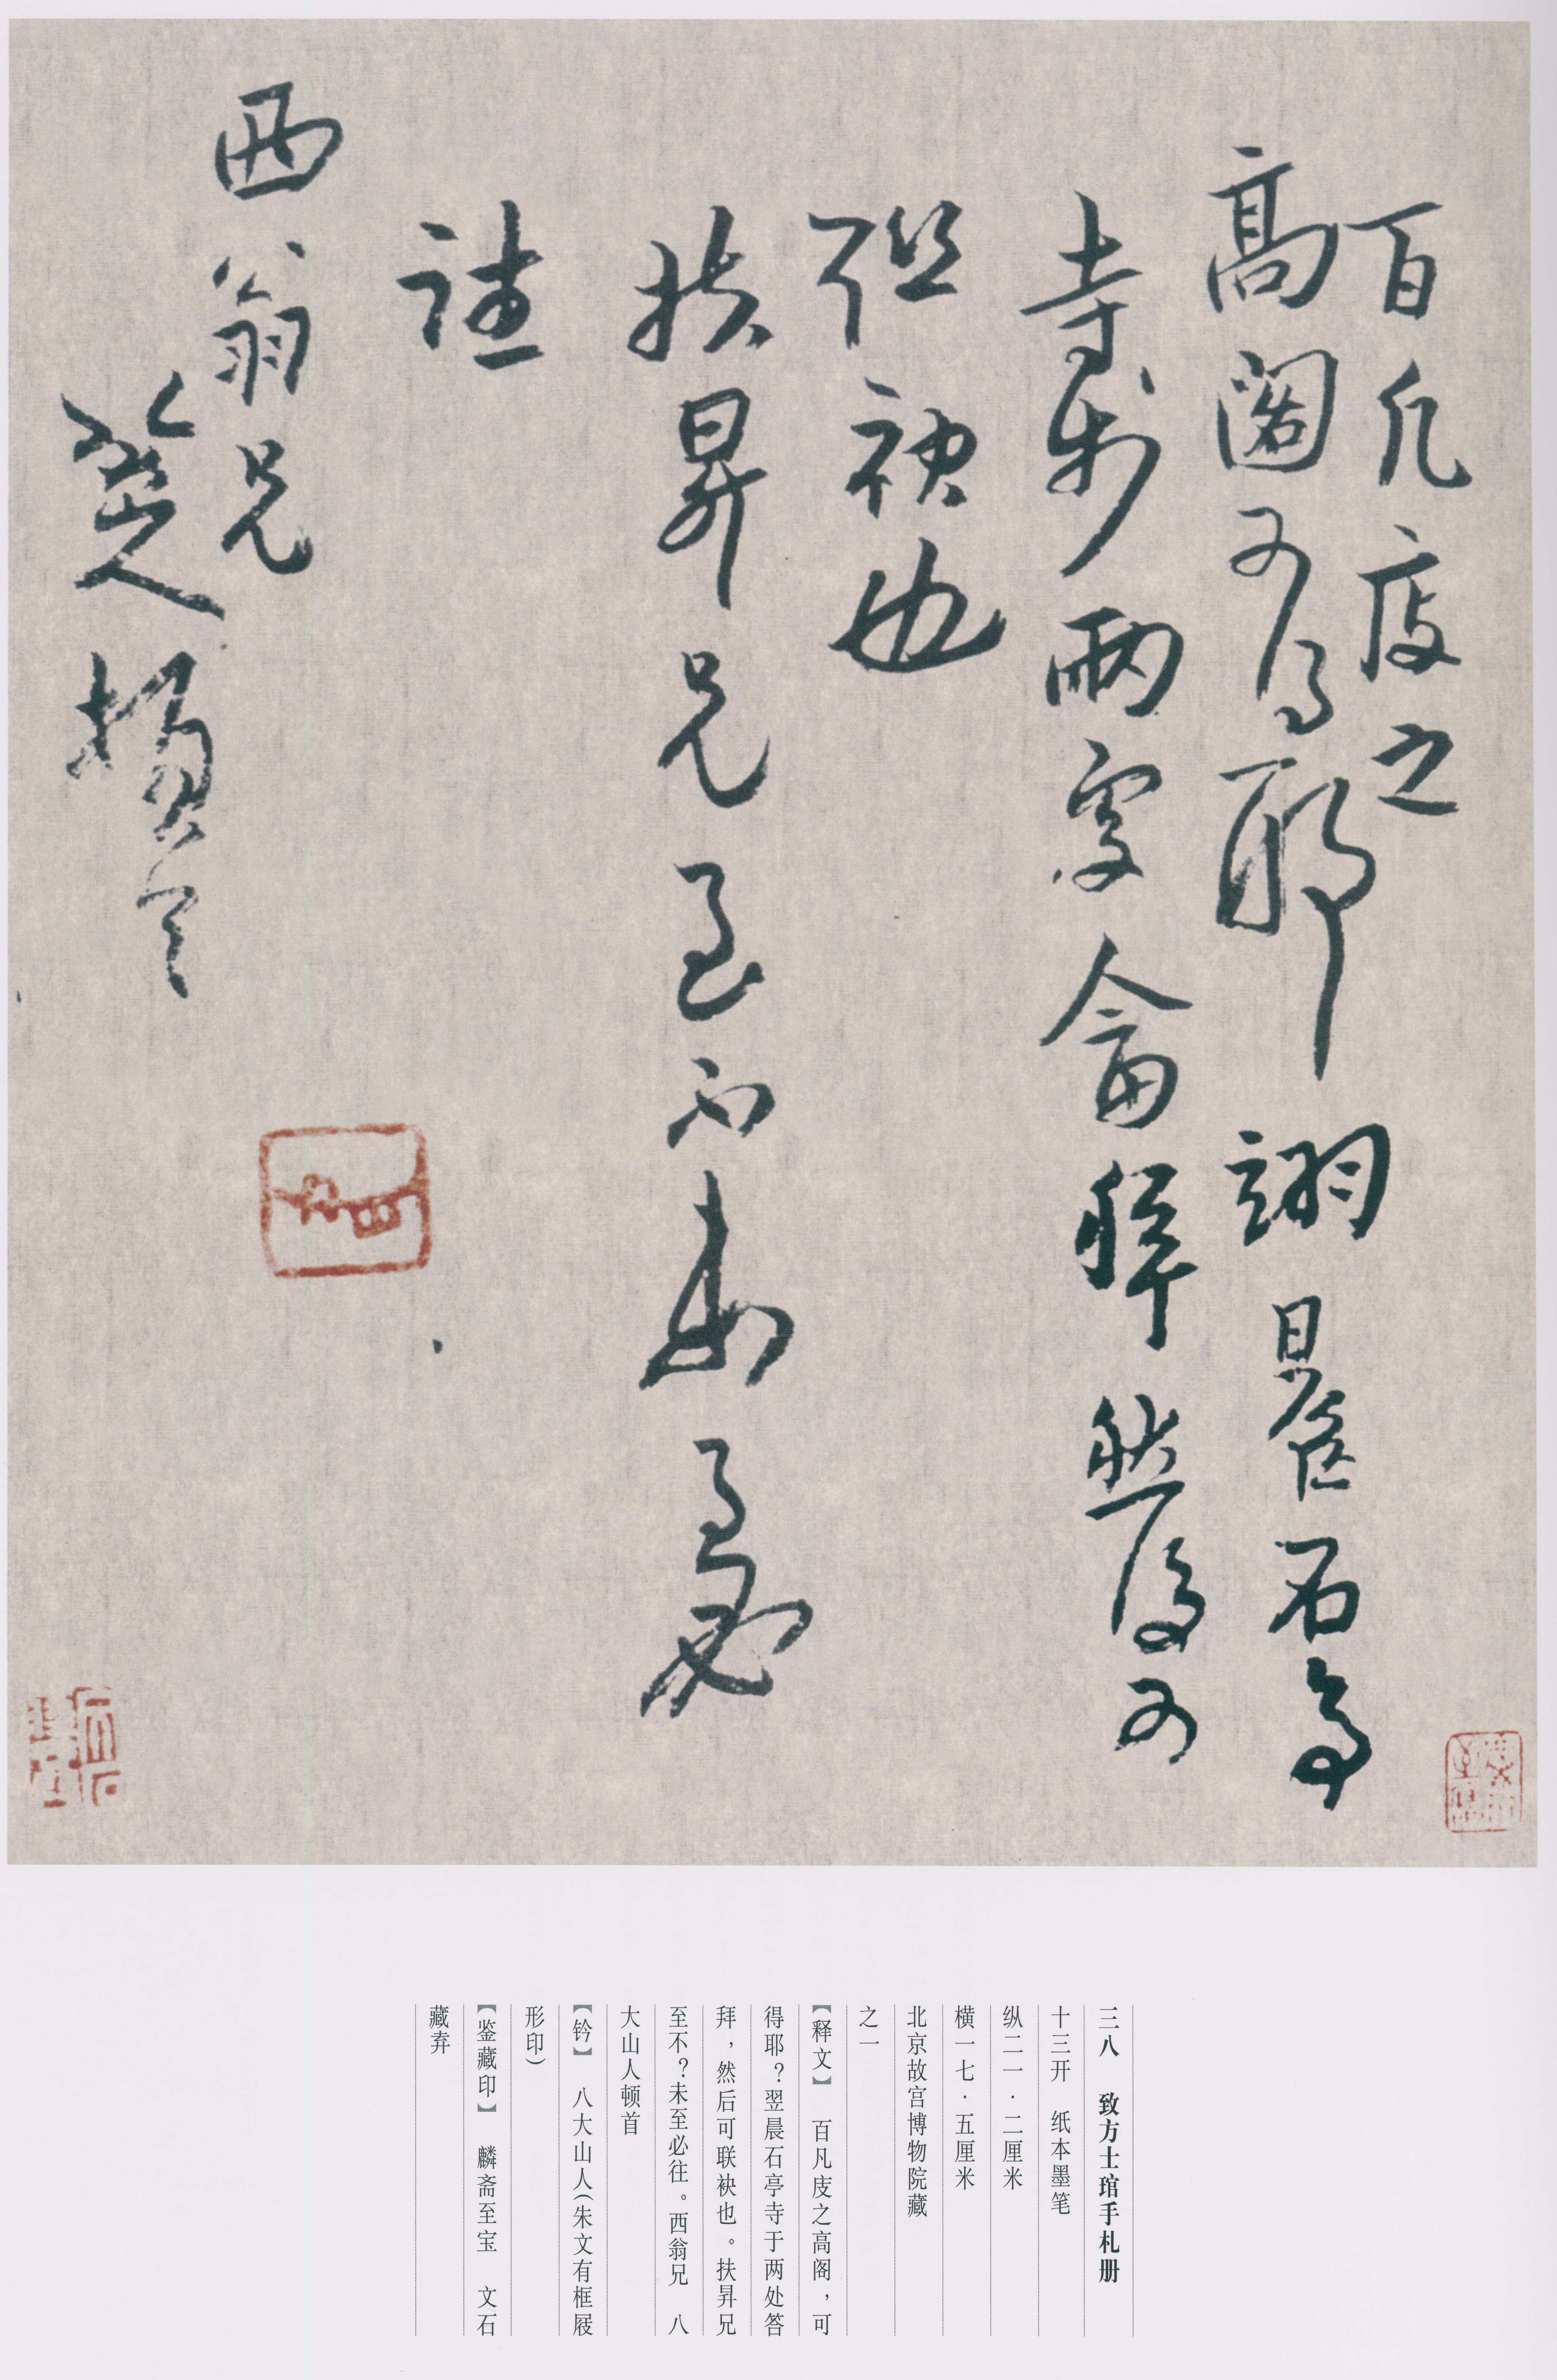 百凡庋之
高阁可得耶翊晨石亭
寺于兩處畣拜然後可
联袂也
扶昇兄至不未至必
往
西翁兄
八大山人頓首
三八 致方士琯手札册
十三开 纸本墨笔
纵二一·二厘米
横一七·五厘米
北京故宫博物院藏
之一
【释文】 百凡庋之高阁，可
得耶？翌晨石亭寺于两处答
拜，然后可联袂也。扶昇兄
至不？未至必往。西翁兄 八
大山人顿首
【钤】 八大山人（朱文有框屐
形印）
【鉴藏印】 麟斋至宝 文石
藏弆